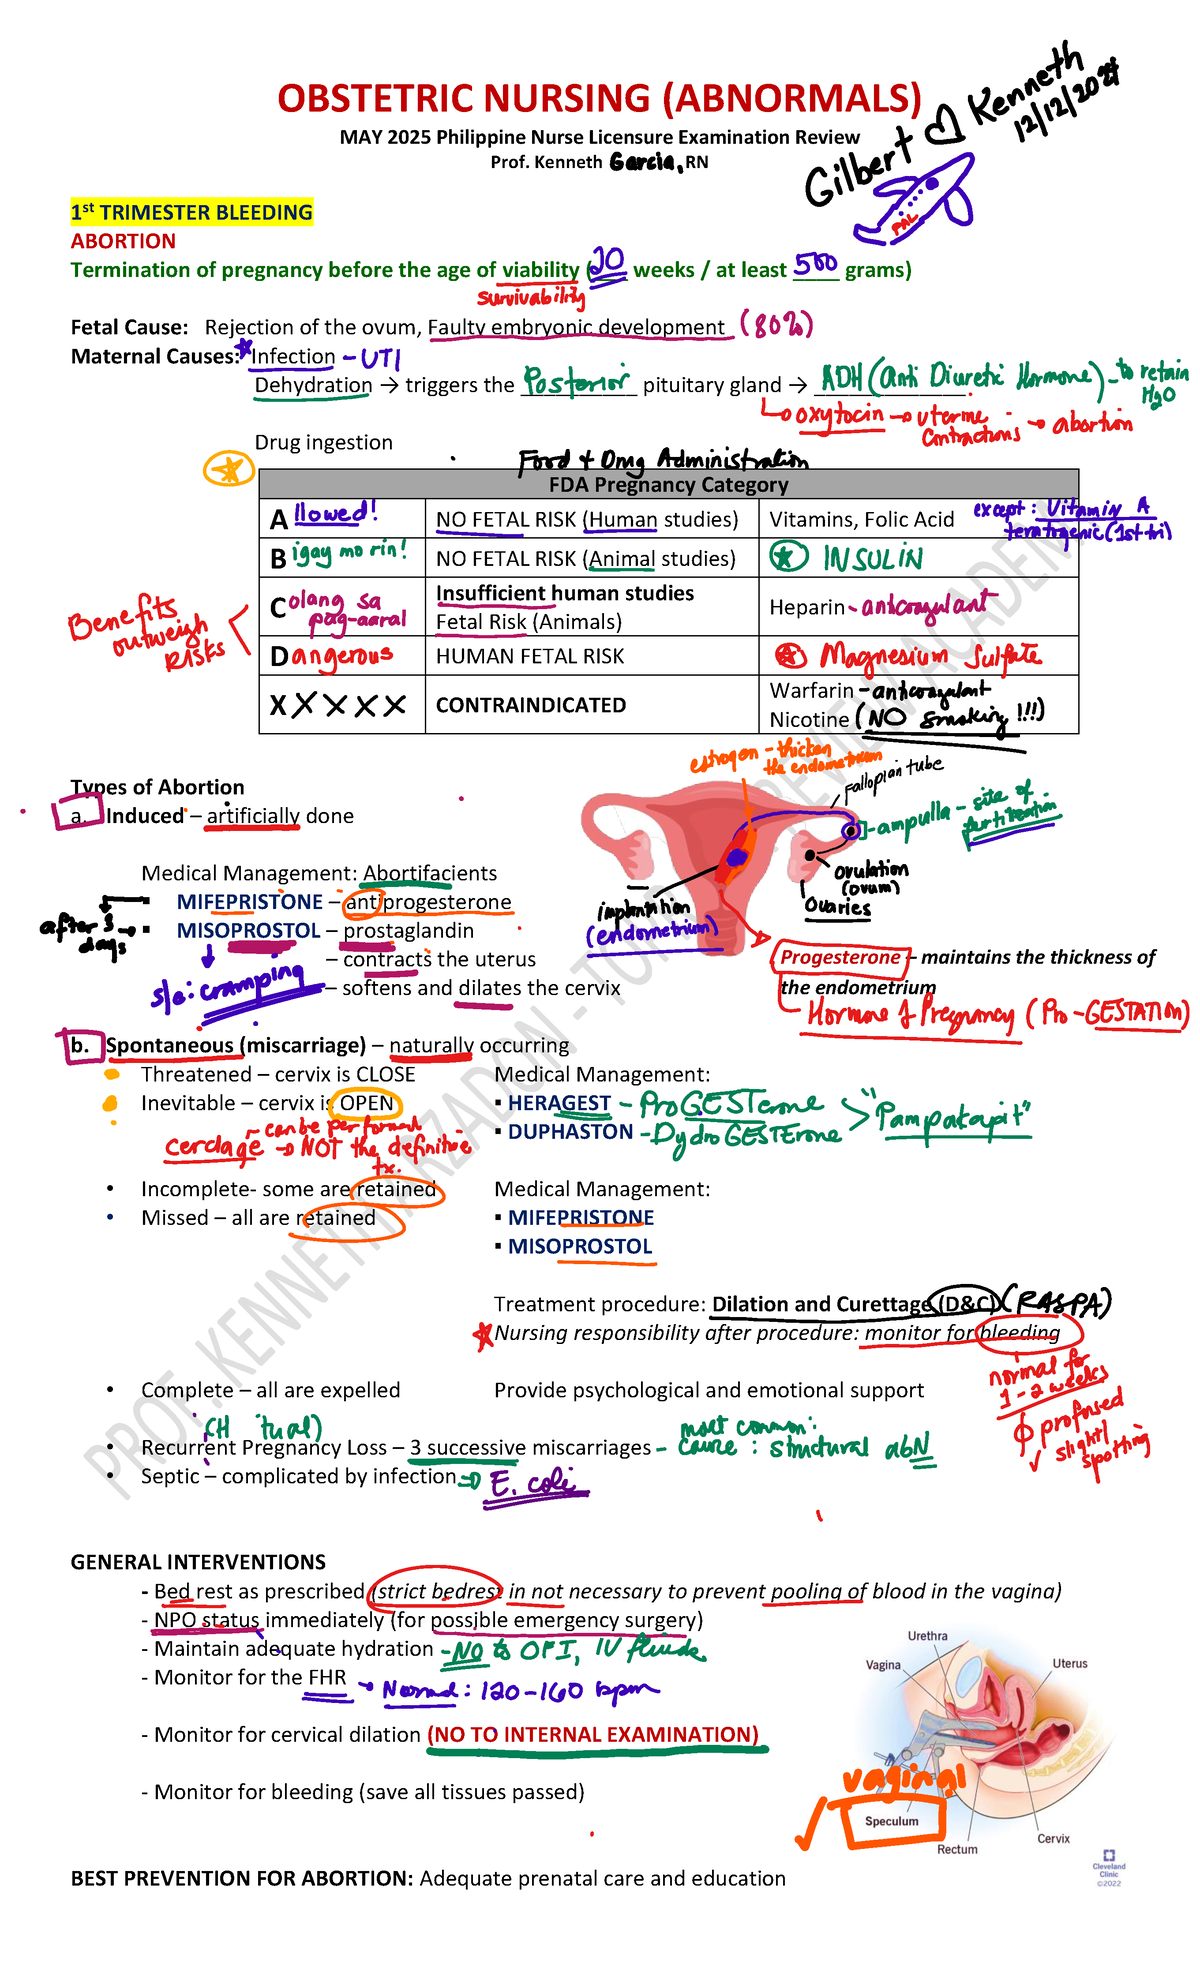 OBSTETRIC NURSING (ABNORMALS)
MAY 2025 Philippine Nurse Licensure Examination Review
Prof. Kenneth Garcia, RN
Gilbert ♡ Kenneth
12/12/2024
PAL
1st TRIMESTER BLEEDING
ABORTION
Termination of pregnancy before the age of viability (20 weeks / at least 500 grams)
survivability
Fetal Cause: Rejection of the ovum, Faulty embryonic development (80%)
Maternal Causes: Infection - UTI
Dehydration → triggers the Posterior pituitary gland → ADH (Anti Diuretic Hormone) - to retain
H2O
oxytocin → uterine contractions → abortion
Drug ingestion
Food + Drug Administration
FDA Pregnancy Category
A llowed! NO FETAL RISK (Human studies) Vitamins, Folic Acid except: Vitamin A
teratogenic (1st tri)
B igay mo rin! NO FETAL RISK (Animal studies) INSULIN
C olang sa pag-aaral Insufficient human studies
Fetal Risk (Animals) Heparin - anticoagulant
Benefits outweigh RISKS
D angerous HUMAN FETAL RISK Magnesium Sulfate
X X X X X CONTRAINDICATED Warfarin - anticoagulant
Nicotine (NO smoking!!!)
estrogen - thicken the endometrium
Fallopian tube
ampulla - site of fertilization
ovulation (ovum)
ovaries
implantation
(endometrium)
Types of Abortion
a. Induced – artificially done
Medical Management: Abortifacients
▪ MIFEPRISTONE – antiprogesterone
after 3 days → ▪ MISOPROSTOL – prostaglandin
– contracts the uterus
s/e: cramping
– softens and dilates the cervix
Progesterone – maintains the thickness of
the endometrium
Hormone of Pregnancy (Pro-GESTATION)
b. Spontaneous (miscarriage) – naturally occurring
Threatened – cervix is CLOSE Medical Management:
Inevitable – cervix is OPEN ▪ HERAGEST - ProGESTerone
▪ DUPHASTON - DydroGESTErone > "Pampakapit"
cerclage - can be performed
→ NOT the definitive tx.
• Incomplete- some are retained Medical Management:
• Missed – all are retained ▪ MIFEPRISTONE
▪ MISOPROSTOL
Treatment procedure: Dilation and Curettage (D&C) (RASPA)
Nursing responsibility after procedure: monitor for bleeding
normal for
1-2 weeks
profused
✓ slight spotting
• Complete – all are expelled Provide psychological and emotional support
(H itual)
• Recurrent Pregnancy Loss – 3 successive miscarriages - most common cause : structural abN
• Septic – complicated by infection ⇒ E. coli
GENERAL INTERVENTIONS
- Bed rest as prescribed (strict bedrest in not necessary to prevent pooling of blood in the vagina)
- NPO status immediately (for possible emergency surgery)
- Maintain adequate hydration - NO to OFI, IV fluids
- Monitor for the FHR → Normal: 120-160 bpm
- Monitor for cervical dilation (NO TO INTERNAL EXAMINATION)
- Monitor for bleeding (save all tissues passed)
Urethra
Vagina
Uterus
vaginal
✓ Speculum
Rectum
Cervix
Cleveland
Clinic
©2022
BEST PREVENTION FOR ABORTION: Adequate prenatal care and education